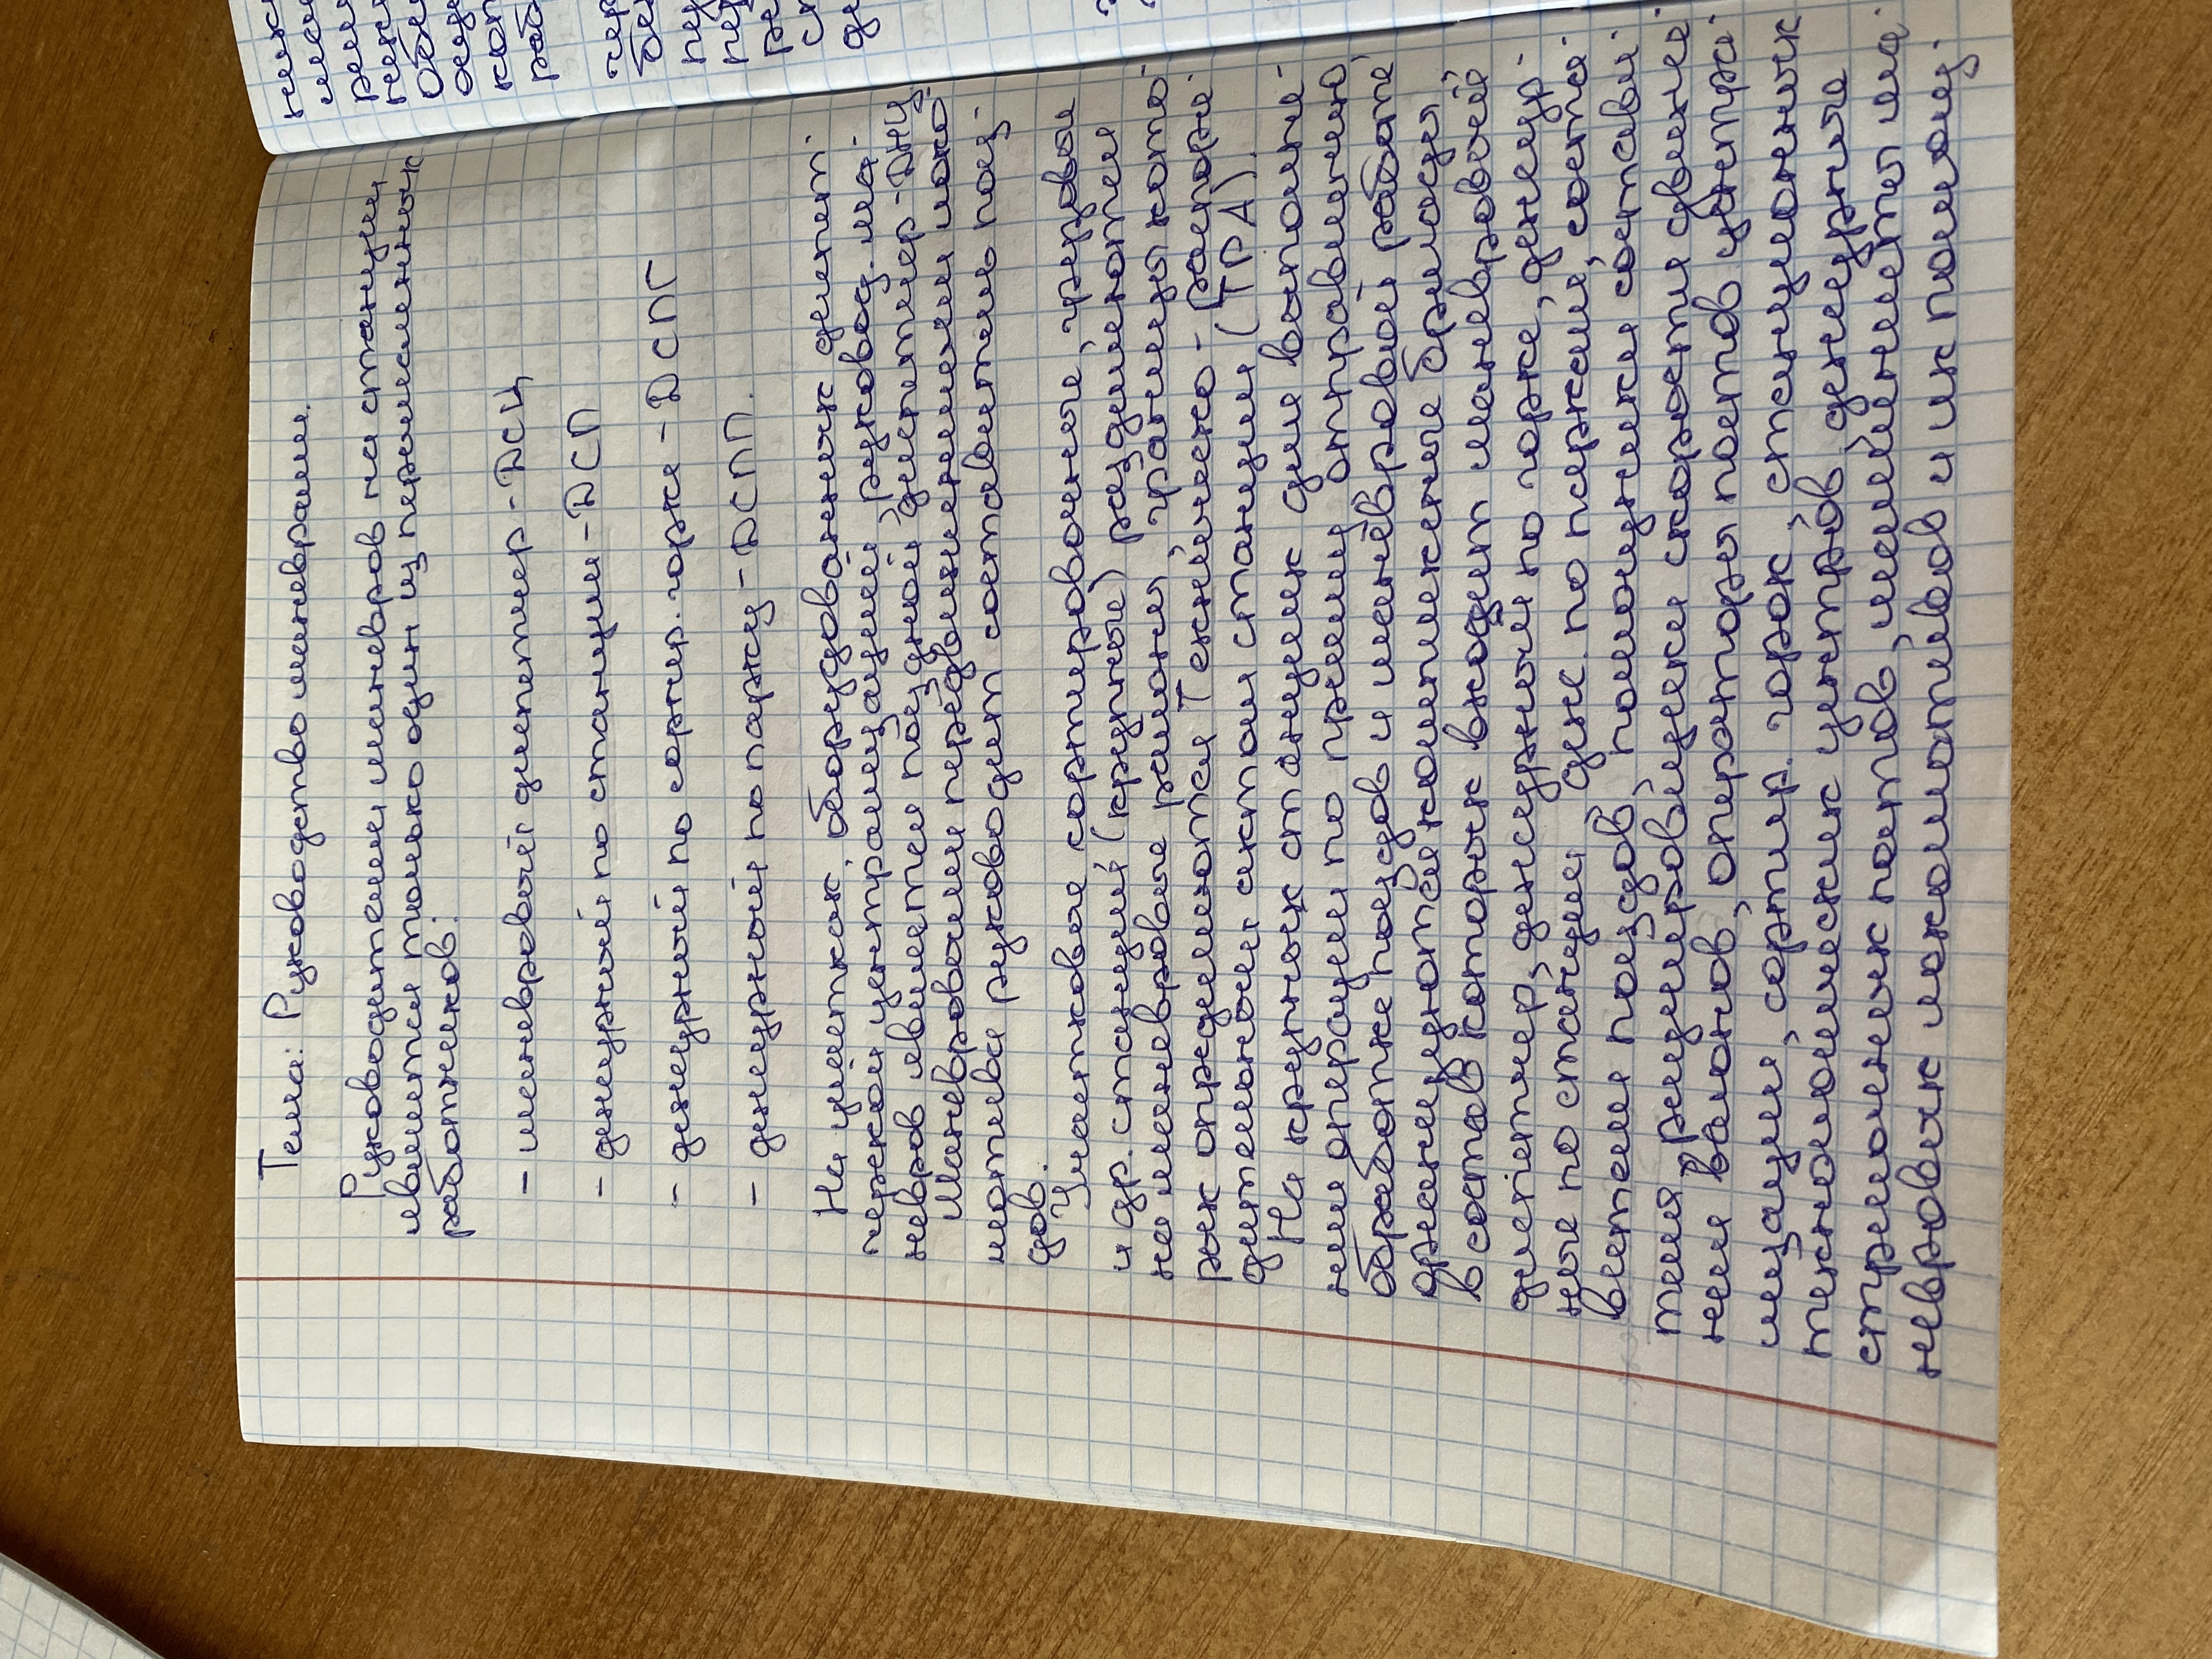 Тема: Руководство маневрами.
Руководителем маневров на станции
является только один из перечисленных
работников:
- маневровый диспетчер - ДСЦ
- дежурный по станции - ДСП
- дежурный по сортир. горке - ДСПГ
- дежурный по парку - ДСПП.
На участках, оборудованных диспет-
черской централизацией, руковод. ма-
невров является поездной диспетчер - ДНЦ
Маневровыми передвижениями локо-
мотива руководит составитель поез-
дов.
Участковые, сортировочные, грузовые
и др. станции (крупные) разделяются
на маневровые районы, границы кото-
рых определяются Техническо - распоря-
дительным актом станции (ТРА).
На крупных станциях для выполне-
ния операции по приему, отправлению
обработке поездов и маневровой работе
организуются комплексные бригады
в состав которых входят маневровый
диспетчер, дежурный по горке, дежур-
ные по станции, деж. по паркам, соста-
вители поездов, помощники составит-
теля, регулировщики скорости движе-
ния вагонов, операторы постов центра-
лизации, сортир. горок, станционных
технологических центров, дежурные
стрелочных постов, машинисты ма-
невровых локомотивов и их помощ-